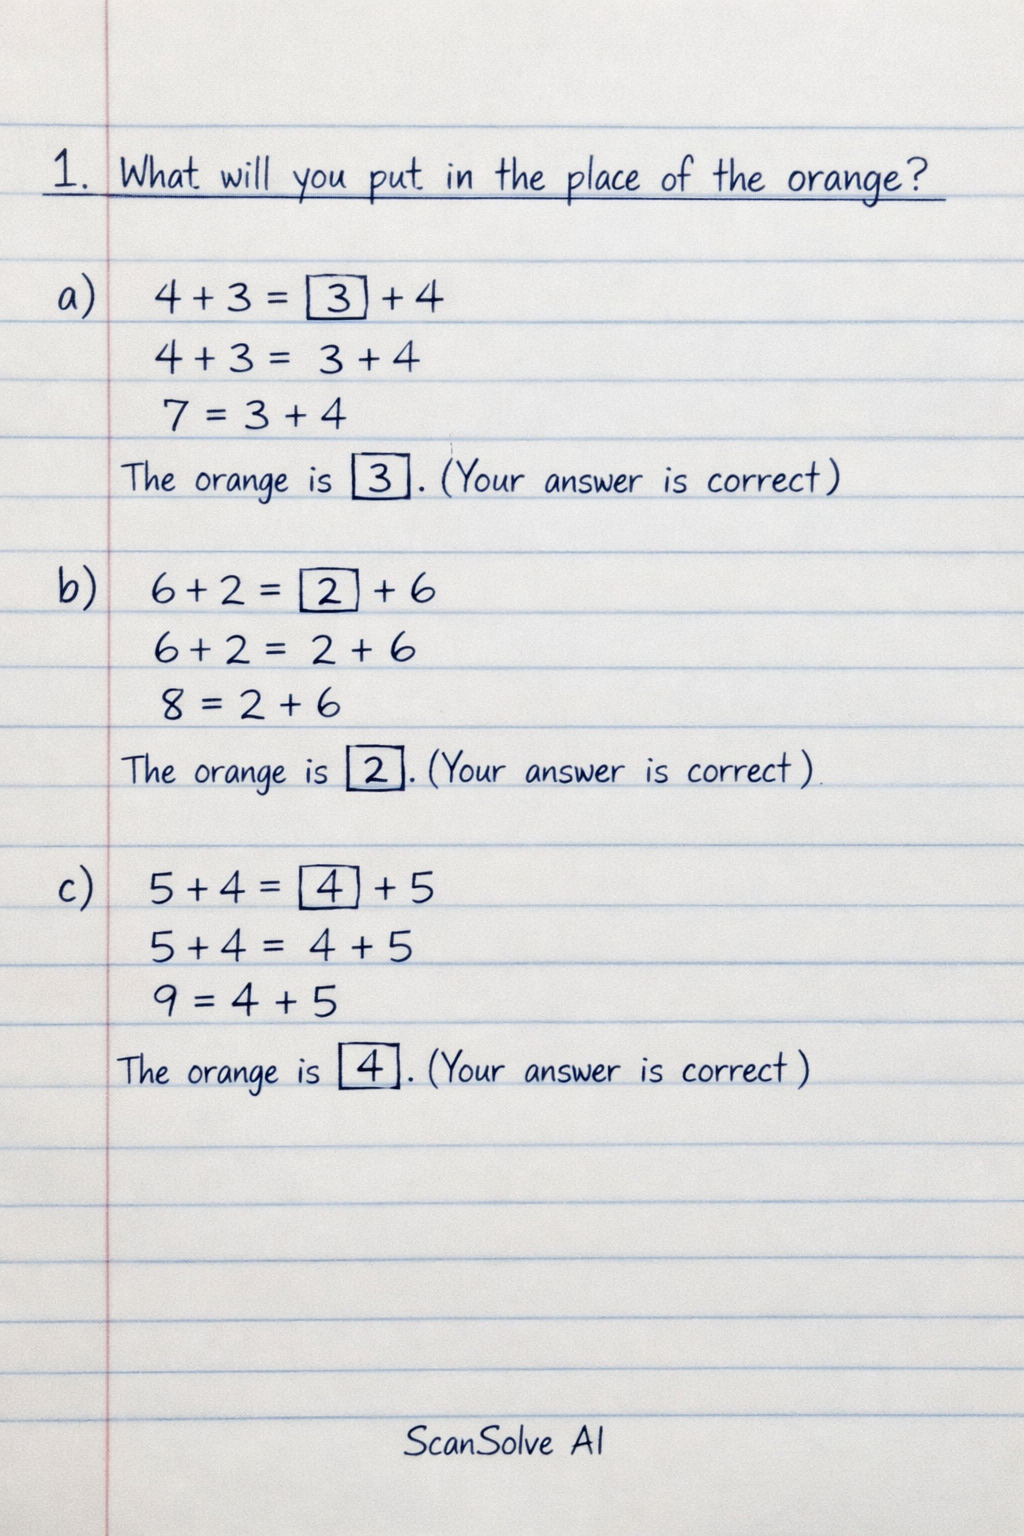 1. What will you put in the place of the orange?
a) 4 + 3 = 3 + 4
4 + 3 = 3 + 4
7 = 3 + 4
The orange is 3. (Your answer is correct)
b) 6 + 2 = 2 + 6
6 + 2 = 2 + 6
8 = 2 + 6
The orange is 2. (Your answer is correct).
c) 5 + 4 = 4 + 5
5 + 4 = 4 + 5
9 = 4 + 5
The orange is 4. (Your answer is correct)
ScanSolve AI